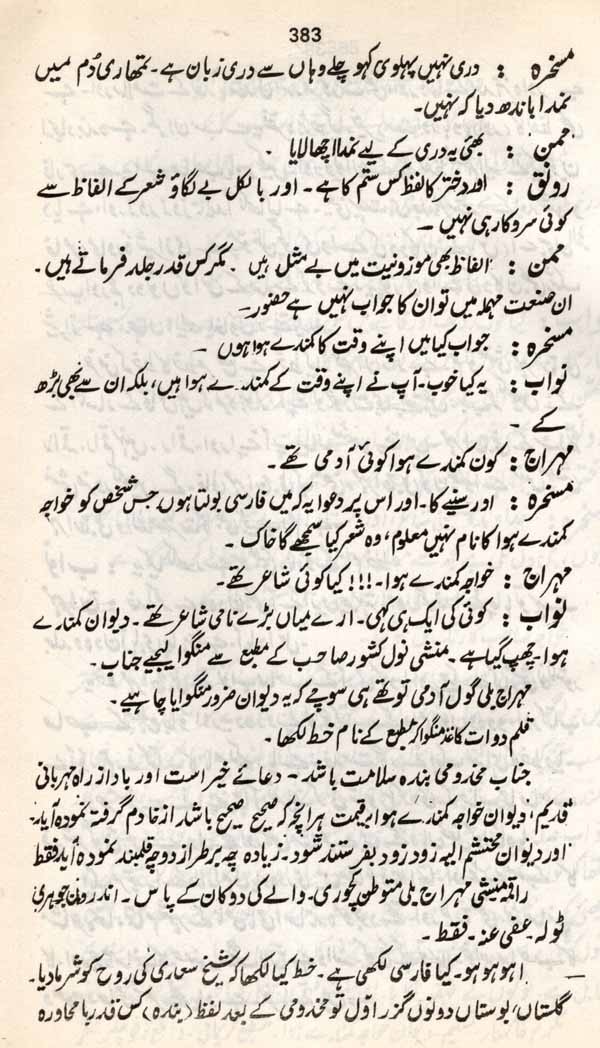 383
مسخرہ : دری نہیں پہلوی کہو چلے وہاں سے دری زبان ہے۔ تمھاری دُم میں
نمدا باندھ دیا کہ نہیں۔
ممن : بھئی یہ دری کے لیے نمدا اچھا لایا
رونق : اور دختر کا لفظ کس ستم کا ہے۔ اور بالکل بے لگاؤ شعر کے الفاظ سے
کوئی سروکار ہی نہیں۔
ممن : الفاظ بھی موزونیت میں بے مثل ہیں۔ مگر کس قدر جلد فرماتے ہیں۔
ان صنعت مہملہ میں تو ان کا جواب نہیں ہے حضور۔
مسخرہ : جواب کیا میں اپنے وقت کا کمندے ہوا ہوں۔
نواب : یہ کیا خوب۔ آپ نے اپنے وقت کے کمندے ہوا ہیں، بلکہ ان سے بھی بڑھ
کے۔
مہراج : کون کمندے ہوا کوئی آدمی تھے۔
مسخرہ : اور سنیے گا۔ اور اس پر دعوا یہ کہ میں فارسی بولتا ہوں جس شخص کو خواجہ
کمندے ہوا کا نام نہیں معلوم، وہ شعر کیا سمجھے گا خاک۔
مہراج : خواجہ کمندے ہوا۔!!! کیا کوئی شاعر تھے۔
نواب : کوئی کی ایک ہی کہی۔ ارے میاں بڑے نامی شاعر تھے۔ دیوان کمندے
ہوا۔ چھپ گیا ہے۔ منشی نول کشور صاحب کے مطبع سے منگوا لیجیے جناب۔
مہراج بلی گول آدمی تو تھے ہی سوچے کہ یہ دیوان ضرور منگوایا چاہیے۔
قلم دوات کاغذ منگوا کر مطبع کے نام خط لکھا۔
جناب مخدومی بندہ سلامت باشد۔ دعائے خیر است اور باد از راہ مہربانی
قدیم، دیوان خواجہ کمندے ہوا بر قیمت ہرانچہ کہ صحیح صحیح باشد از خادم گرفتہ نمودہ آید۔
اور دیوان محتشم الیہ زود زود بفرستند شود۔ زیادہ چہ بر طراز دوچہ قلمبند نمودہ آید فقط
راقم منشی مہراج بلی متوطن کچوری۔ والے کی دوکان کے پاس۔ اندرون جوہری
ٹولہ۔ عفی عنہ۔ فقط۔
اہو ہو ہو۔ کیا فارسی لکھی ہے۔ خط کیا لکھا کہ شیخ سعاری کی روح کو شرما دیا۔
گلستاں، بوستاں دونوں گزر اول تو مخدومی کے بعد لفظ (بندہ) کس قدر با محاورہ